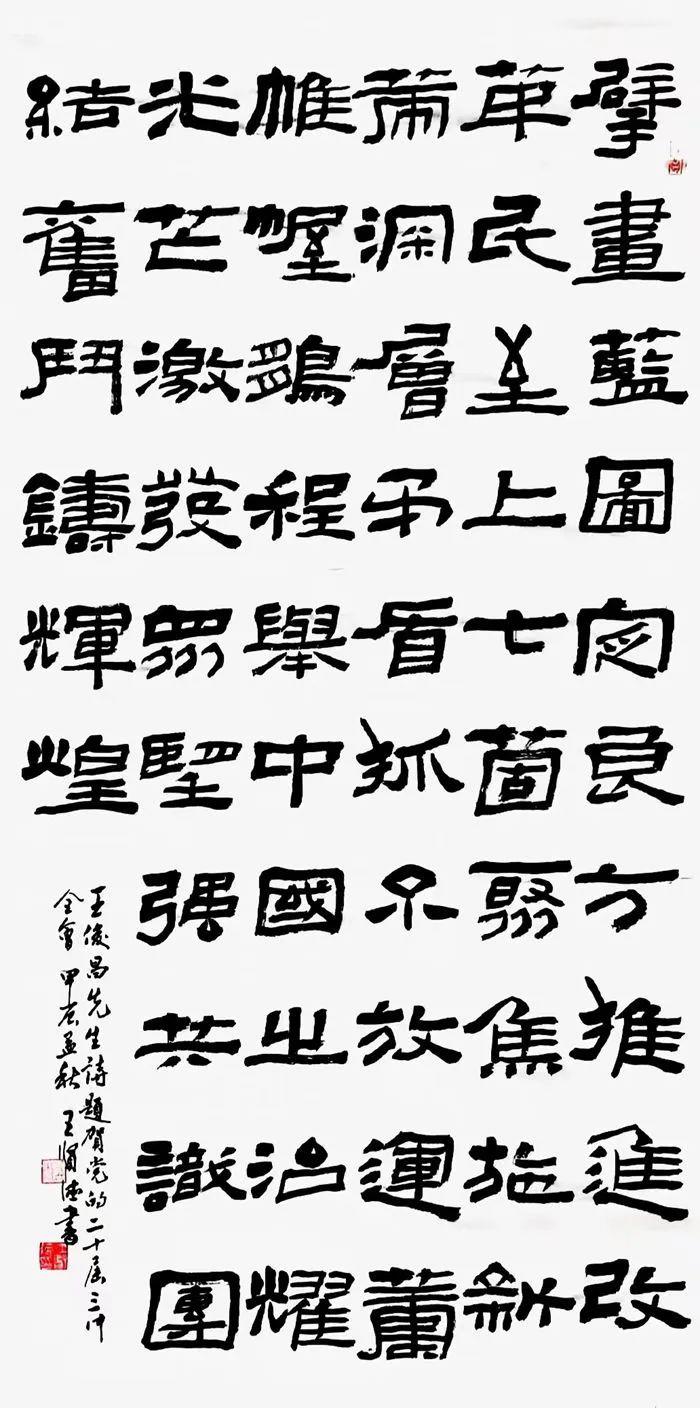 擘畫藍圖良方推進改
革民至上七箇聚焦施新
策深層矛盾抓不放運籌
帷幄鵬程舉中國之治耀
光芒激發眾堅強共識團
結奮鬥鑄輝煌
王俊昌先生詩題賀党的二十屆三中
全會甲辰孟秋王德書